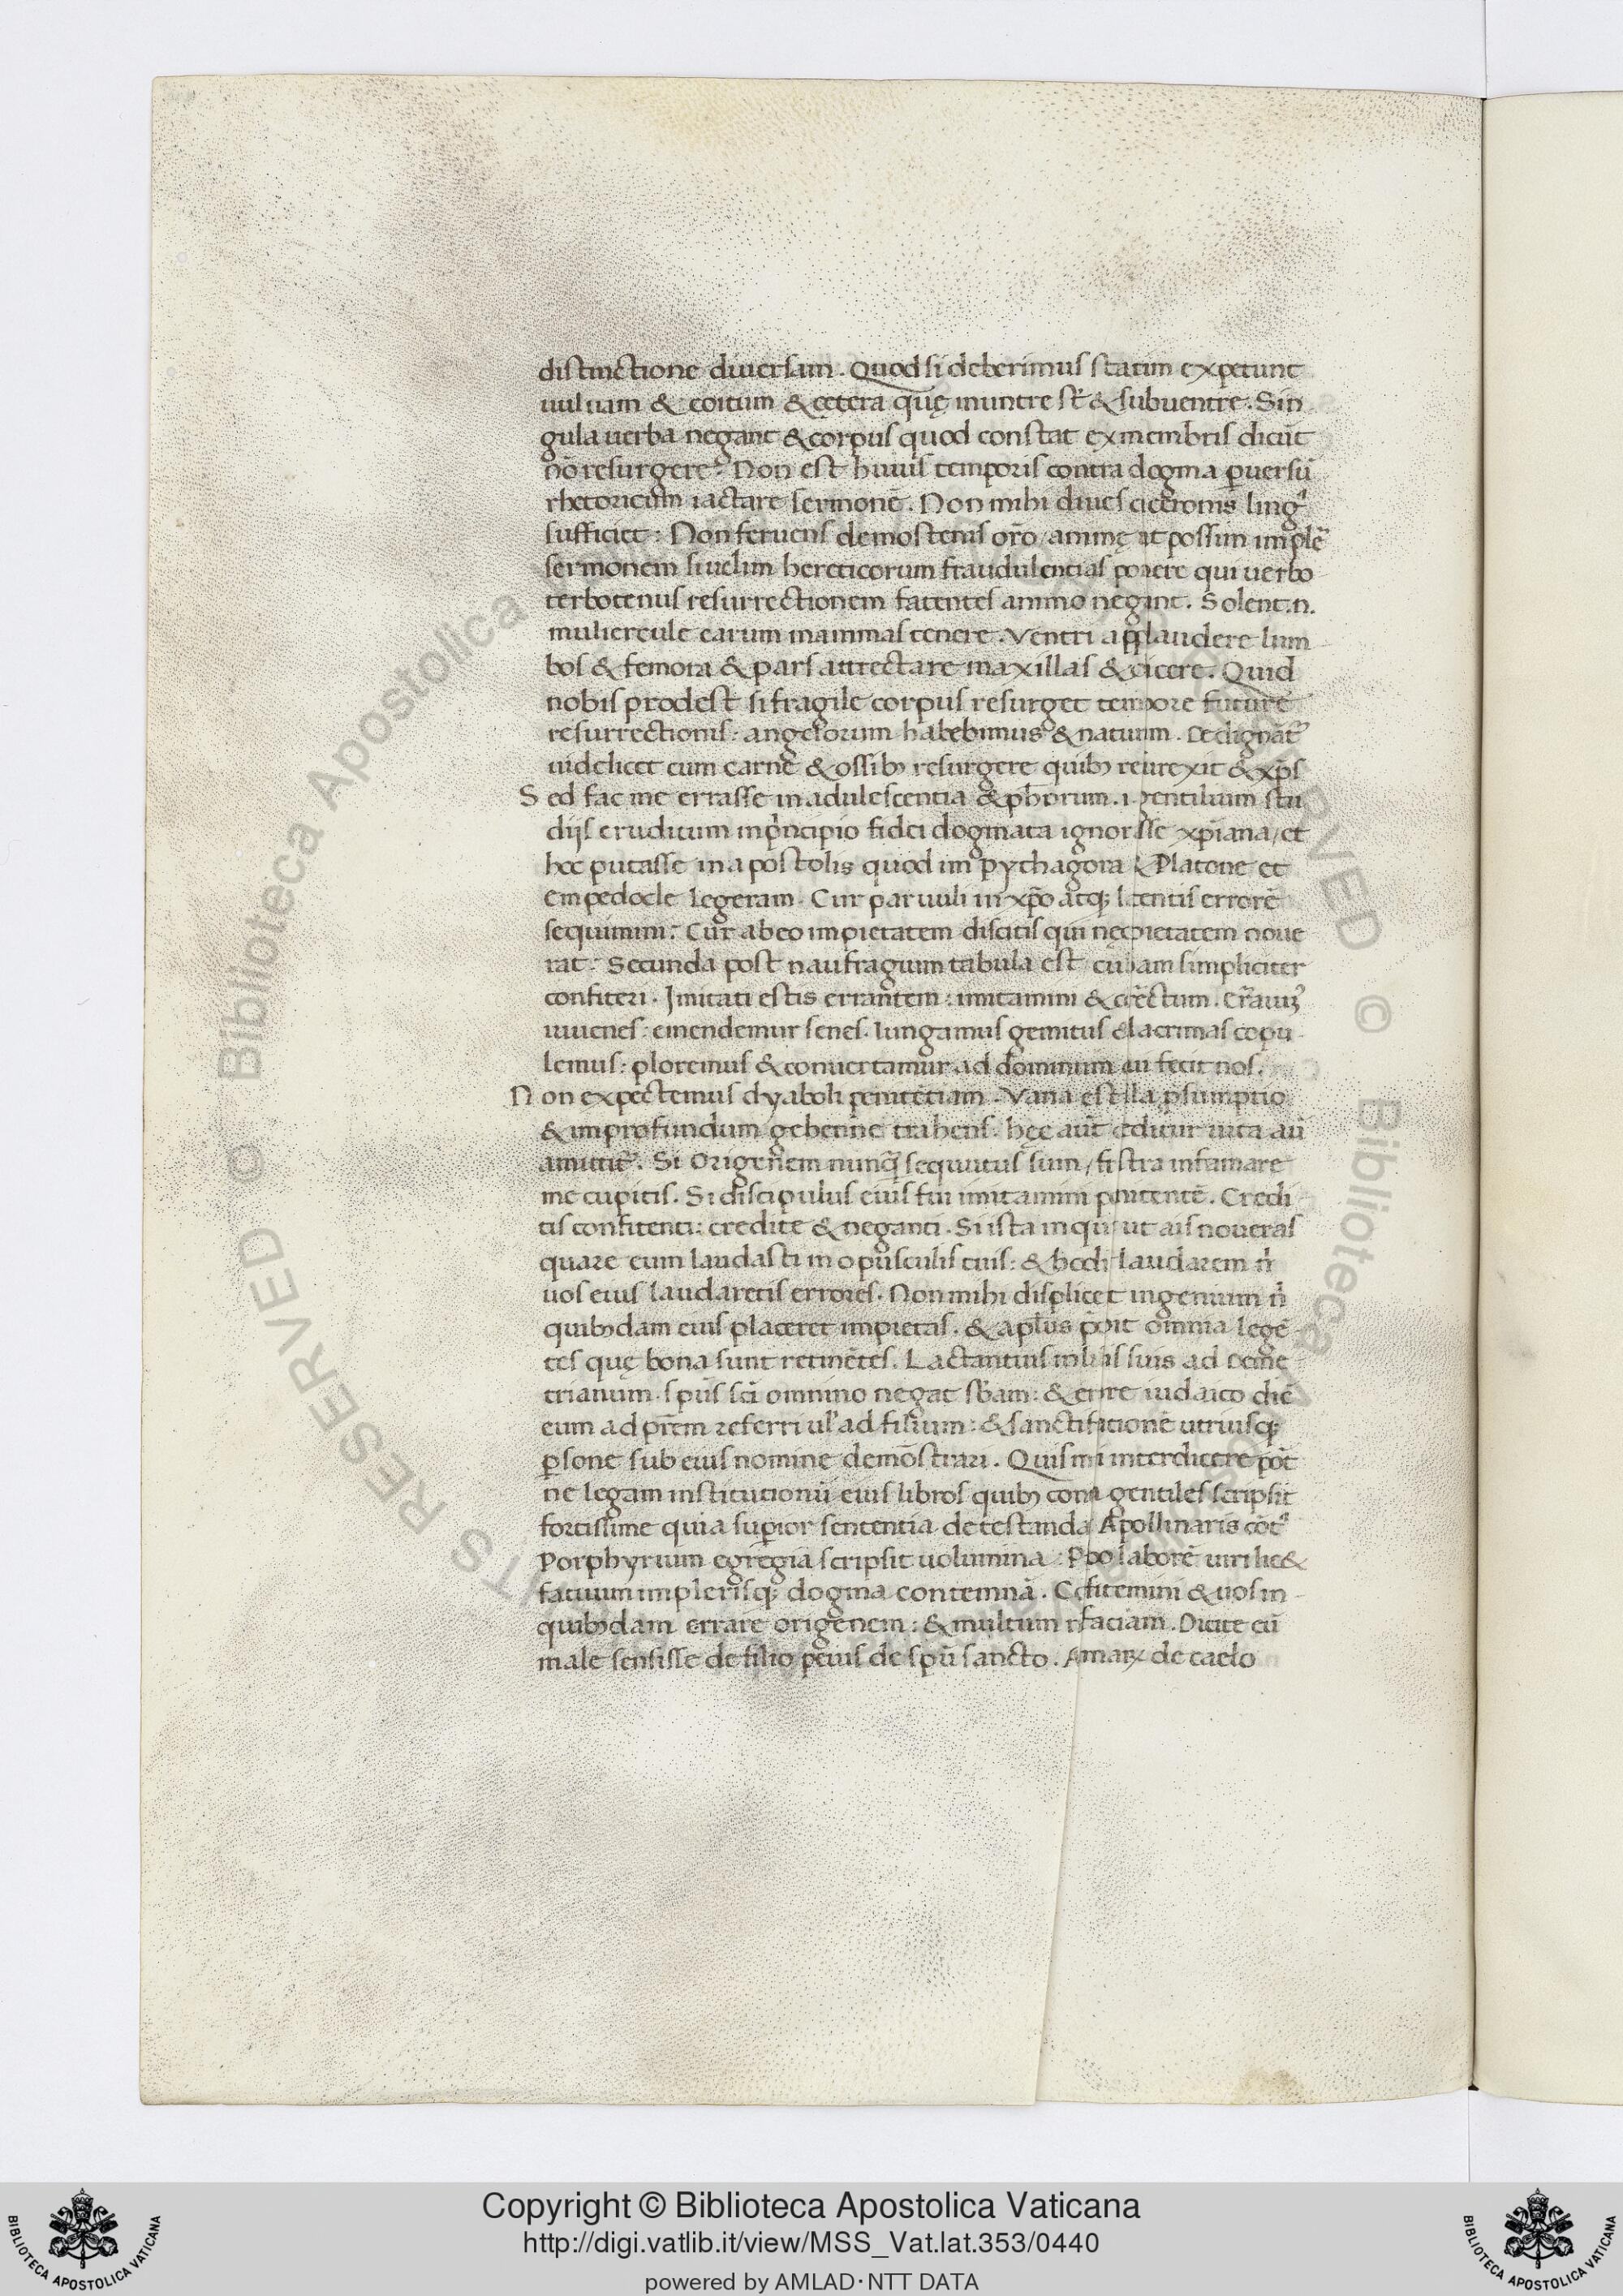 distinctione diuersam. Quod si dederimus statim expetunt
uuluam & coitum & cetera quę inuntre st̄ & subuentre. Sin
gula uerba negant & corpus quod constat ex membris dicūt
nō resurgere. Non est huius temporis contra dogma ꝑuersū
rhetoricum iactare sermonē. Non mihi diues ciceronis ling
sufficiet: Non feruens demostenis orō animę ut possim implē
sermonem si uelim hereticorum fraudulentias ponere qui uerbo
terbotenus resurrectionem fatentes animo negant. Solent .n.
muliercule earum mammas tenere. Ventri applaudere lum
bos & femora & pars attrectare maxillas & dicere. Quid
nobis prodest si fragile corpus resurget tempore future
resurrectionis: angelorum habebimus & naturam. Dedignāt
uidelicet cum carne & ossibꝫ resurgere quibꝫ resurrexit & xp̄s
Sed fac me errasse in adulescentia & ph̄orum .i. gentilium stu
dijs eruditum in pͥncipio fidei dogmata ignorasse xp̄iana, et
hoc putasse in apostolis quod im pythagora & Platone et
empedocle legeram. Cur paruuli in xp̄o atqꝫ lactentis errorē
sequimini: Cur ab eo impietatem discitis qui nec pietatem noue
rat. Secunda post naufragium tabula est culpam simpliciter
confiteri. Imitati estis errantem: imitamini & correctum. Errauimꝰ
iuuenes: emendemur senes. Iungamus gemitus & lacrimas copu
lemus: ploremus & conuertamur ad dominum qui fecit nos.
Non expectemus dyaboli penitētiam. Vana est illa p̄sumptio
& improfundum gehenne trahens. hęc aut̄ editur uita aū
amittit̄. Si Origenem nunq̄ sequutus sum, frustra infamare
me cupitis. Si discipulus eius fui imitamini penitentē. Credi
tis confitenti: credite & neganti. Si ista inquit ut ais noueras
quare eum laudasti in opusculis tuis: & hodie laudarem n
uos eius laudaretis errores. Non mihi displiceret ingenium n
quibꝫdam eius placeret impietas. & apl̄us p̄cipit omnia legē
tes quę bona sunt retinētes. Lactantius in libris suis ad Deme
trianum. sp̄us scī omnino negat sb̄am: & errore iudaico dicē
eum ad pr̄em referri ul̓ ad filium: & sanctificationē utriusqꝫ
ꝑsone sub eius nomine demōstrari. Quis mi interdicere pot̄
ne legam institutionū eius libros quibꝫ contra gentiles scripsit
fortissime quia superior sententia detestanda Apollinaris cōt
Porphyrium egregia scripsit uolumina: Probo laborē uiri lic&
fatuum in plerisqꝫ dogma contemnā. Cōfitemini & uos in
quibꝫdam errare origenem: & multum n faciam. Dicite eū
male sensisse de filio peius de spū sancto. Amaꝝ de caelo
Copyright © Biblioteca Apostolica Vaticana
http://digi.vatlib.it/view/MSS_Vat.lat.353/0440
powered by AMLAD·NTT DATA